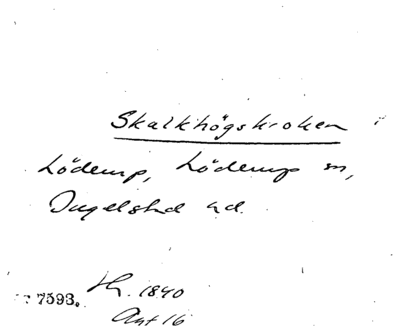 Skalkhögskroken i
Löderup, Löderup sn,
Ingelstad hd.
7593. Lk. 1840
Akt 16